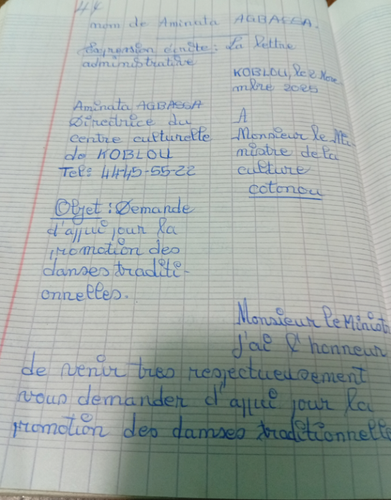 nom de Aminata AGBAGGA.
Expression écrite : La lettre
administrative
KOBLOU, le 2 Nove
mbre 2025
Aminata AGBAGGA
Directrice du
centre culturelle
de KOBLOU
Tel: 4445-55-22
A
Monsieur le Mi
nistre de la
culture
cotonou
Objet : Demande
d'appui pour la
promotion des
danses traditi-
onnelles.
Monsieur le Minist
j'ai l'honneur
de venir tres respectueusement
vous demander d'appui pour la
promotion des danses traditionnelle